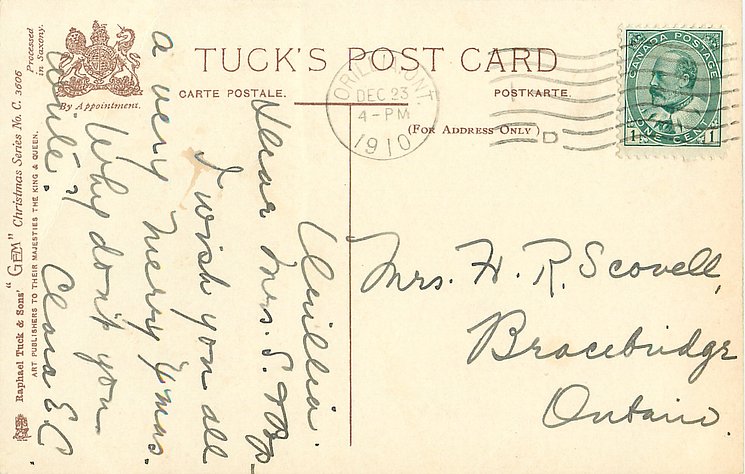 TUCK'S POST CARD
CARTE POSTALE.
POSTKARTE.
(FOR ADDRESS ONLY)
By Appointment.
Processed
in Saxony.
Raphael Tuck & Sons' "GEM" Christmas Series No. C. 3606
ART PUBLISHERS TO THEIR MAJESTIES THE KING & QUEEN.
ORILLIA, ONT
DEC 23
4 - PM
1910
D
CANADA POSTAGE
ONE CENT
1 1
Orillia.
Dear Mrs. S.
I wish you all
a very Merry Xmas.
Why don't you
write?
Clara E C
Mrs. H. R. Scovell,
Bracebridge
Ontario.